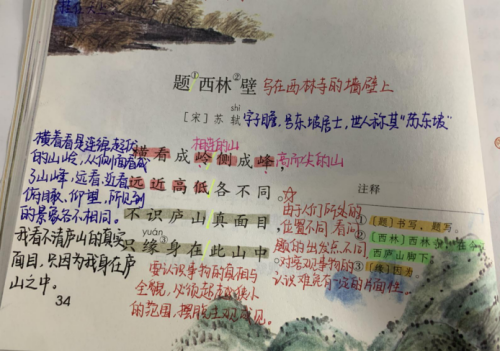 题①西林②壁 写在西林寺的墙壁上
shì
[宋] 苏 轼 字子瞻,号东坡居士,世人称其“苏东坡”
相连的山
横看成岭侧成峰, 高而尖的山
远近高低各不同。
不识庐山真面目
yuán
只缘身在此山中
横看看是连绵起伏
的山岭,从侧面看成
了山峰,远看、近看
俯瞰、仰望,所见到
的景象各不相同。
我看不清庐山的真实
面目,只因为我身在庐
山之中。
34
要认识事物的真相与
全貌,必须超越狭小
的范围,摆脱主观成见。
由于人们所处的
位置不同,看问
题的出发点不同,
对客观事物的
认识难免有一定的片面性
注释
①[题]书写,题写。
②[西林]西林寺,在今
西庐山脚下。
③[缘]因为